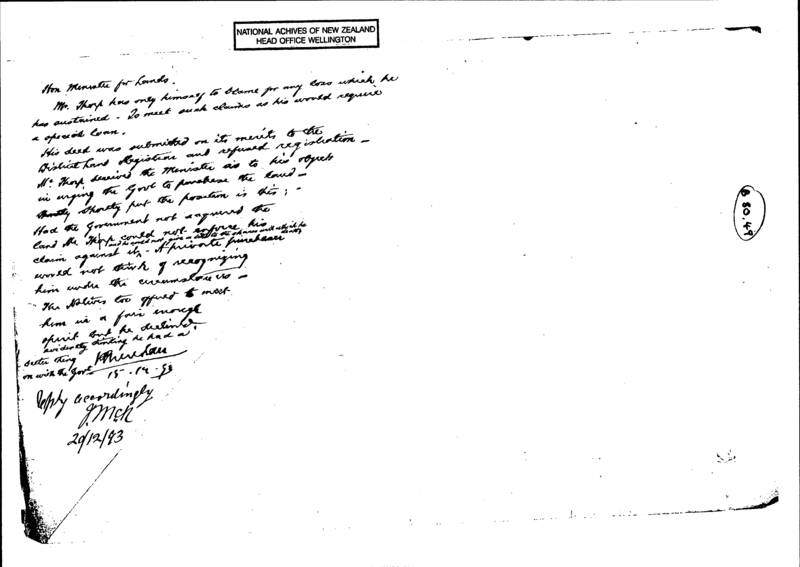 NATIONAL ACHIVES OF NEW ZEALAND
HEAD OFFICE WELLINGTON
Hon Minister for Lands.
Mr. Thorp has only himself to blame for any loss which he
has sustained - To meet such claims as his would require
a special loan.
His deed was submitted on its merits to the
District Land Registrar and refused registration -
Mr Thorp deceived the Minister as to his objects
in urging the Govt to purchase the land -
Shortly put the position is this; -
Had the Government not acquired the
land Mr Thorp could not enforce his
claim against it, - A private purchaser
would not think of recognizing
him under the circumstances -
The Natives too offered to meet
him in a fair enough
spirit but he declined
evidently thinking he had a
better thing
on with the Govt
15.12.93
Reply accordingly
J. McK
20/12/93
B 80.49